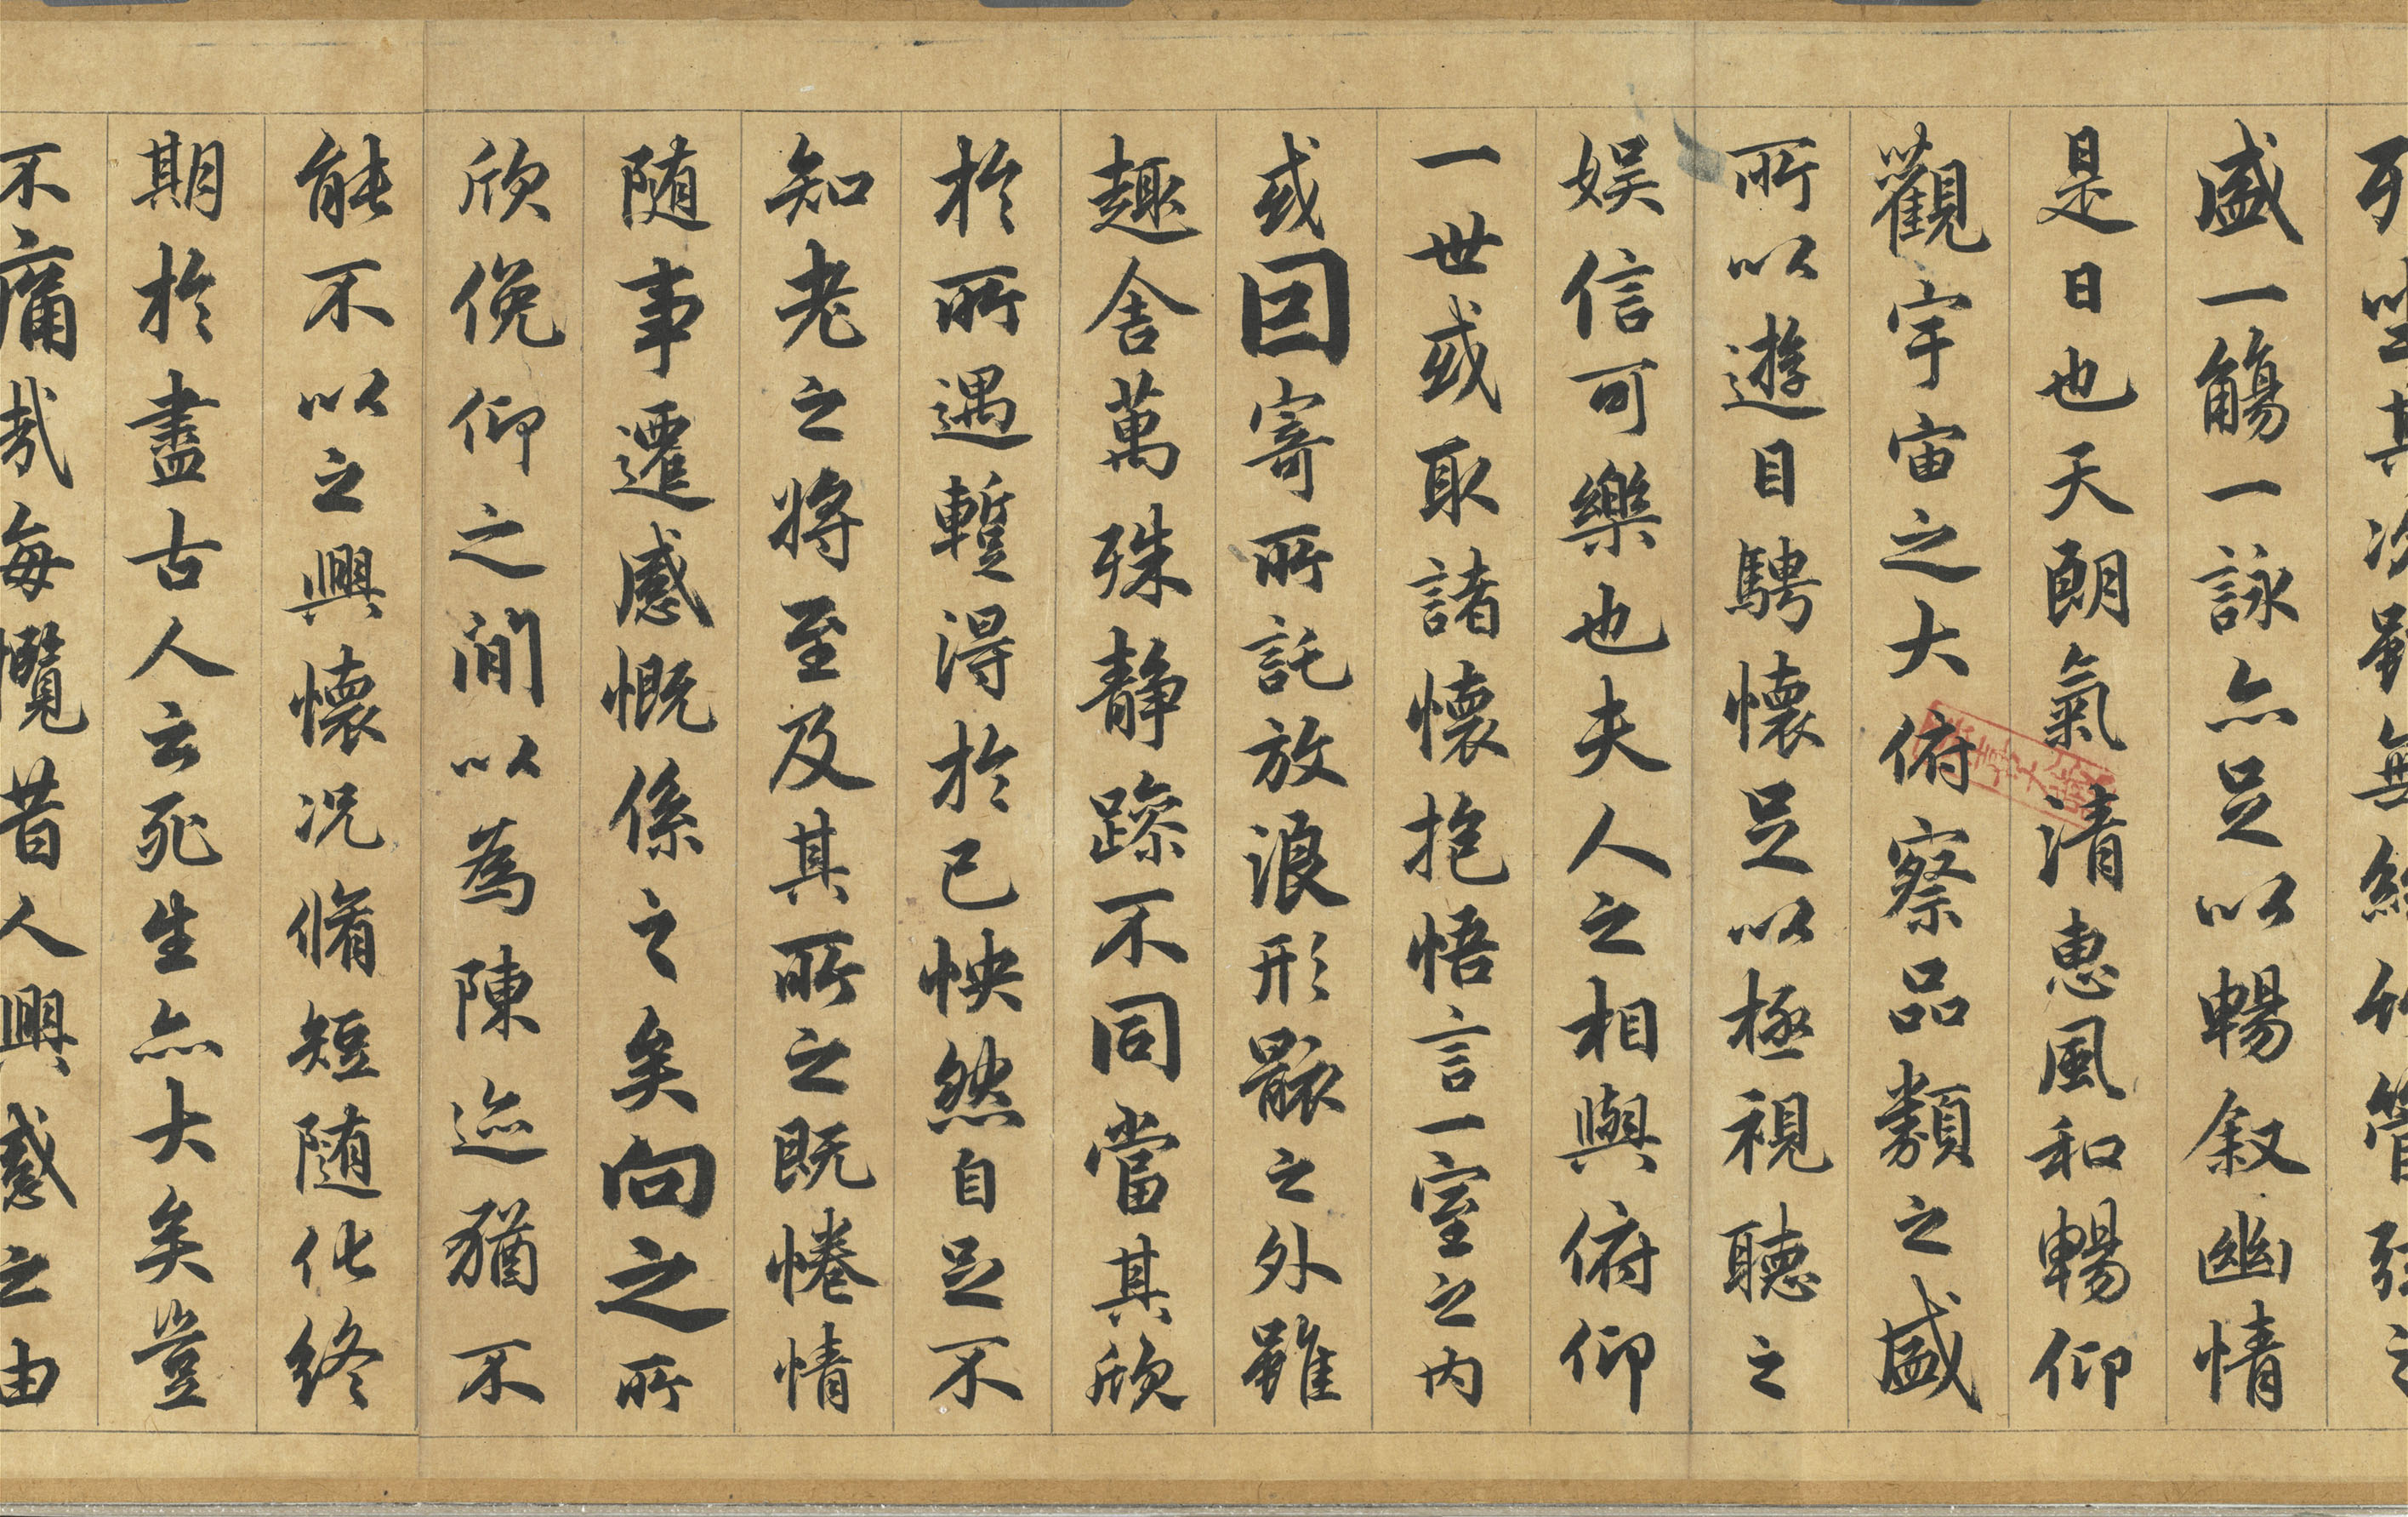 列坐其次雖無絲竹管弦之
盛一觴一詠亦足以暢叙幽情
是日也天朗氣清惠風和暢仰
觀宇宙之大俯察品類之盛
所以遊目騁懷足以極視聽之
娛信可樂也夫人之相與俯仰
一世或取諸懷抱悟言一室之内
或因寄所託放浪形骸之外雖
趣舍萬殊静躁不同當其欣
於所遇蹔得於己怏然自足不
知老之將至及其所之既惓情
随事遷感慨係之矣向之所
欣俛仰之閒以為陳迹猶不
能不以之興懷况脩短随化終
期於盡古人云死生亦大矣豈
不痛哉每攬昔人興感之由